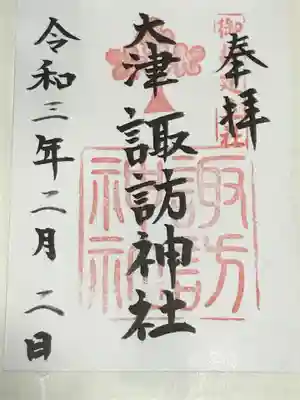 奉拝
大津
諏訪神社
令和三年二月二日
諏訪
神社